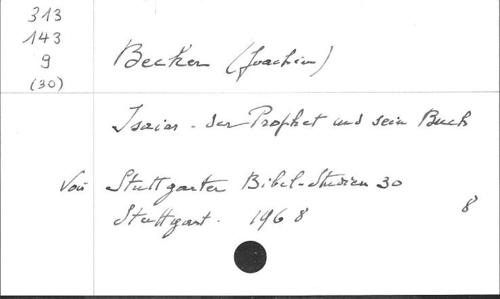 313
143
9
(30)
Becker (Joachim)
Isaias - der Prophet und sein Buch
Voir Stuttgarter Bibel-Studien 30
Stuttgart. 1968
8